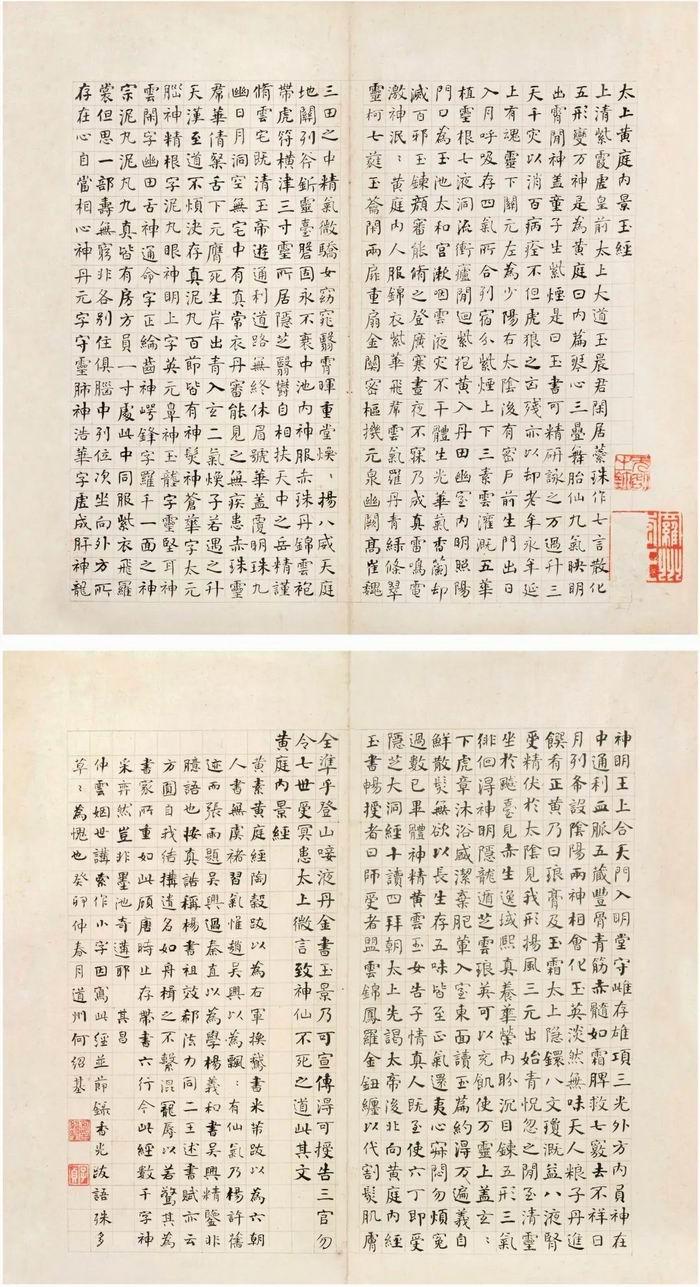 太上黄庭內景玉經
上清紫霞虛皇前太上大道玉晨君閑居蕊珠作七言散化
五形變万神是為黄庭曰內篇琴心三疊舞胎仙九氣映明
出霄間神蓋童子生紫煙是曰玉書可精研詠之万過升三
天千灾以消百病痊不但虎狼之凶殘亦以却老年永年延
上有魂靈下關元左為少陽右太陰後有密戶前生門出日
入月呼吸存四氣所合列宿分紫煙上下三素雲灌溉五華
植靈根七液洞流衝廬間迴紫抱黄入丹田幽室內明照陽
門口為玉池太和官漱咽雲液灾不干體生光華氣香蘭却
滅百邪玉鍊顏審能脩之登廣寒晝夜不寐乃成真雷鳴電
激神泯〻黄庭內人服錦衣紫華飛羣雲氣羅丹青綠條翠
靈柯七蕤玉籥閇兩扉重扇金關密樞機元泉幽闕高崔巍
三田之中精氣微驕女窈窕翳霄暉重堂煥〻揚八威天庭
地關列谷斲靈臺磐固永不衰中池內神服赤珠丹錦雲袍
帶虎符橫津三寸靈所居隱芝翳欝自相扶天中之岳精謹
脩雲宅既清玉帝遊通利道路無終休眉號華蓋覆明珠九
幽日月洞空無宅中有真常衣丹審能見之無疾患赤珠靈
帬華倩粲舌下元膺死生岸出青入玄二氣煥子若遇之升
天漢至道不煩決存真泥九百節皆有神髮神蒼華字太元
腦神精根字泥九眼神明上字英元鼻神玉壟字靈堅耳神
雲閑字幽田舌神通命字正綸齒神崿鋒字羅千一面之神
宗泥九泥凡九真皆有房方員一寸處此中同服紫衣飛羅
裳但思一部壽無窮非各別住俱腦中列位次坐向外方所
存在心自當相心神丹元字守靈肺神浩華字虛成肝神龍
神明王上合天門入明堂守雌存雄項三光外方內員神在
中通利血脈五藏豐骨青筋赤髓如霜脾救七竅去不祥日
月列布設陰陽兩神相會化玉英淡然無味天人粮子丹進
饌肴正黄乃曰琅膏及玉霜太上隱鐶八文瓊溉益八液腎
受精伏於太陰見我形揚風三元出始青怳忽之間至清靈
坐於飈臺見赤生逸域熙真養華榮內盼沉目鍊五形三氣
徘徊得神明隱龍遁芝雲琅英可以充飢使万靈上蓋玄〻
下虎章沐浴盛潔棄肥葷入室東面讀玉篇約得万遍義自
鮮散髮無欲以長生存五味皆至正氣還夷心寂悶勿煩冤
過數已畢體神精黄雲玉女告子情真人既至使六丁即受
隱芝大洞經十讀四拜朝太上先謁太帝後北向黄庭內經
玉書暢授者曰師受者盟雲錦鳳羅金鈕纏以代割髮肌膚
全準手登山唼液丹金書玉景乃可宣傳得可授告三官勿
令七世受冥患太上微言致神仙不死之道此其文
黄庭內景經
黄素黄庭經陶穀跋以為右軍換鵞書米芾跋以為六朝
人書無虞褚習氣惟趙吳興以為飄〻有仙氣乃楊許舊
迹而張雨題吳興過秦直以為學楊義和書吳興精鑒非
臆語也按真誥稱楊書祖效郗法力同二王述書賦亦云
方圓自我結構遺名如舟楫之不繫混寵辱以若驚其為
書家所重如此顧唐時止存帶書六行今此經數千字神
采弈然豈非墨池奇遘耶 其昌
仲雲姻世講索作小字因寫此經並節錄香光跋語殊多
草〻為愧也癸卯仲春月道州何紹基